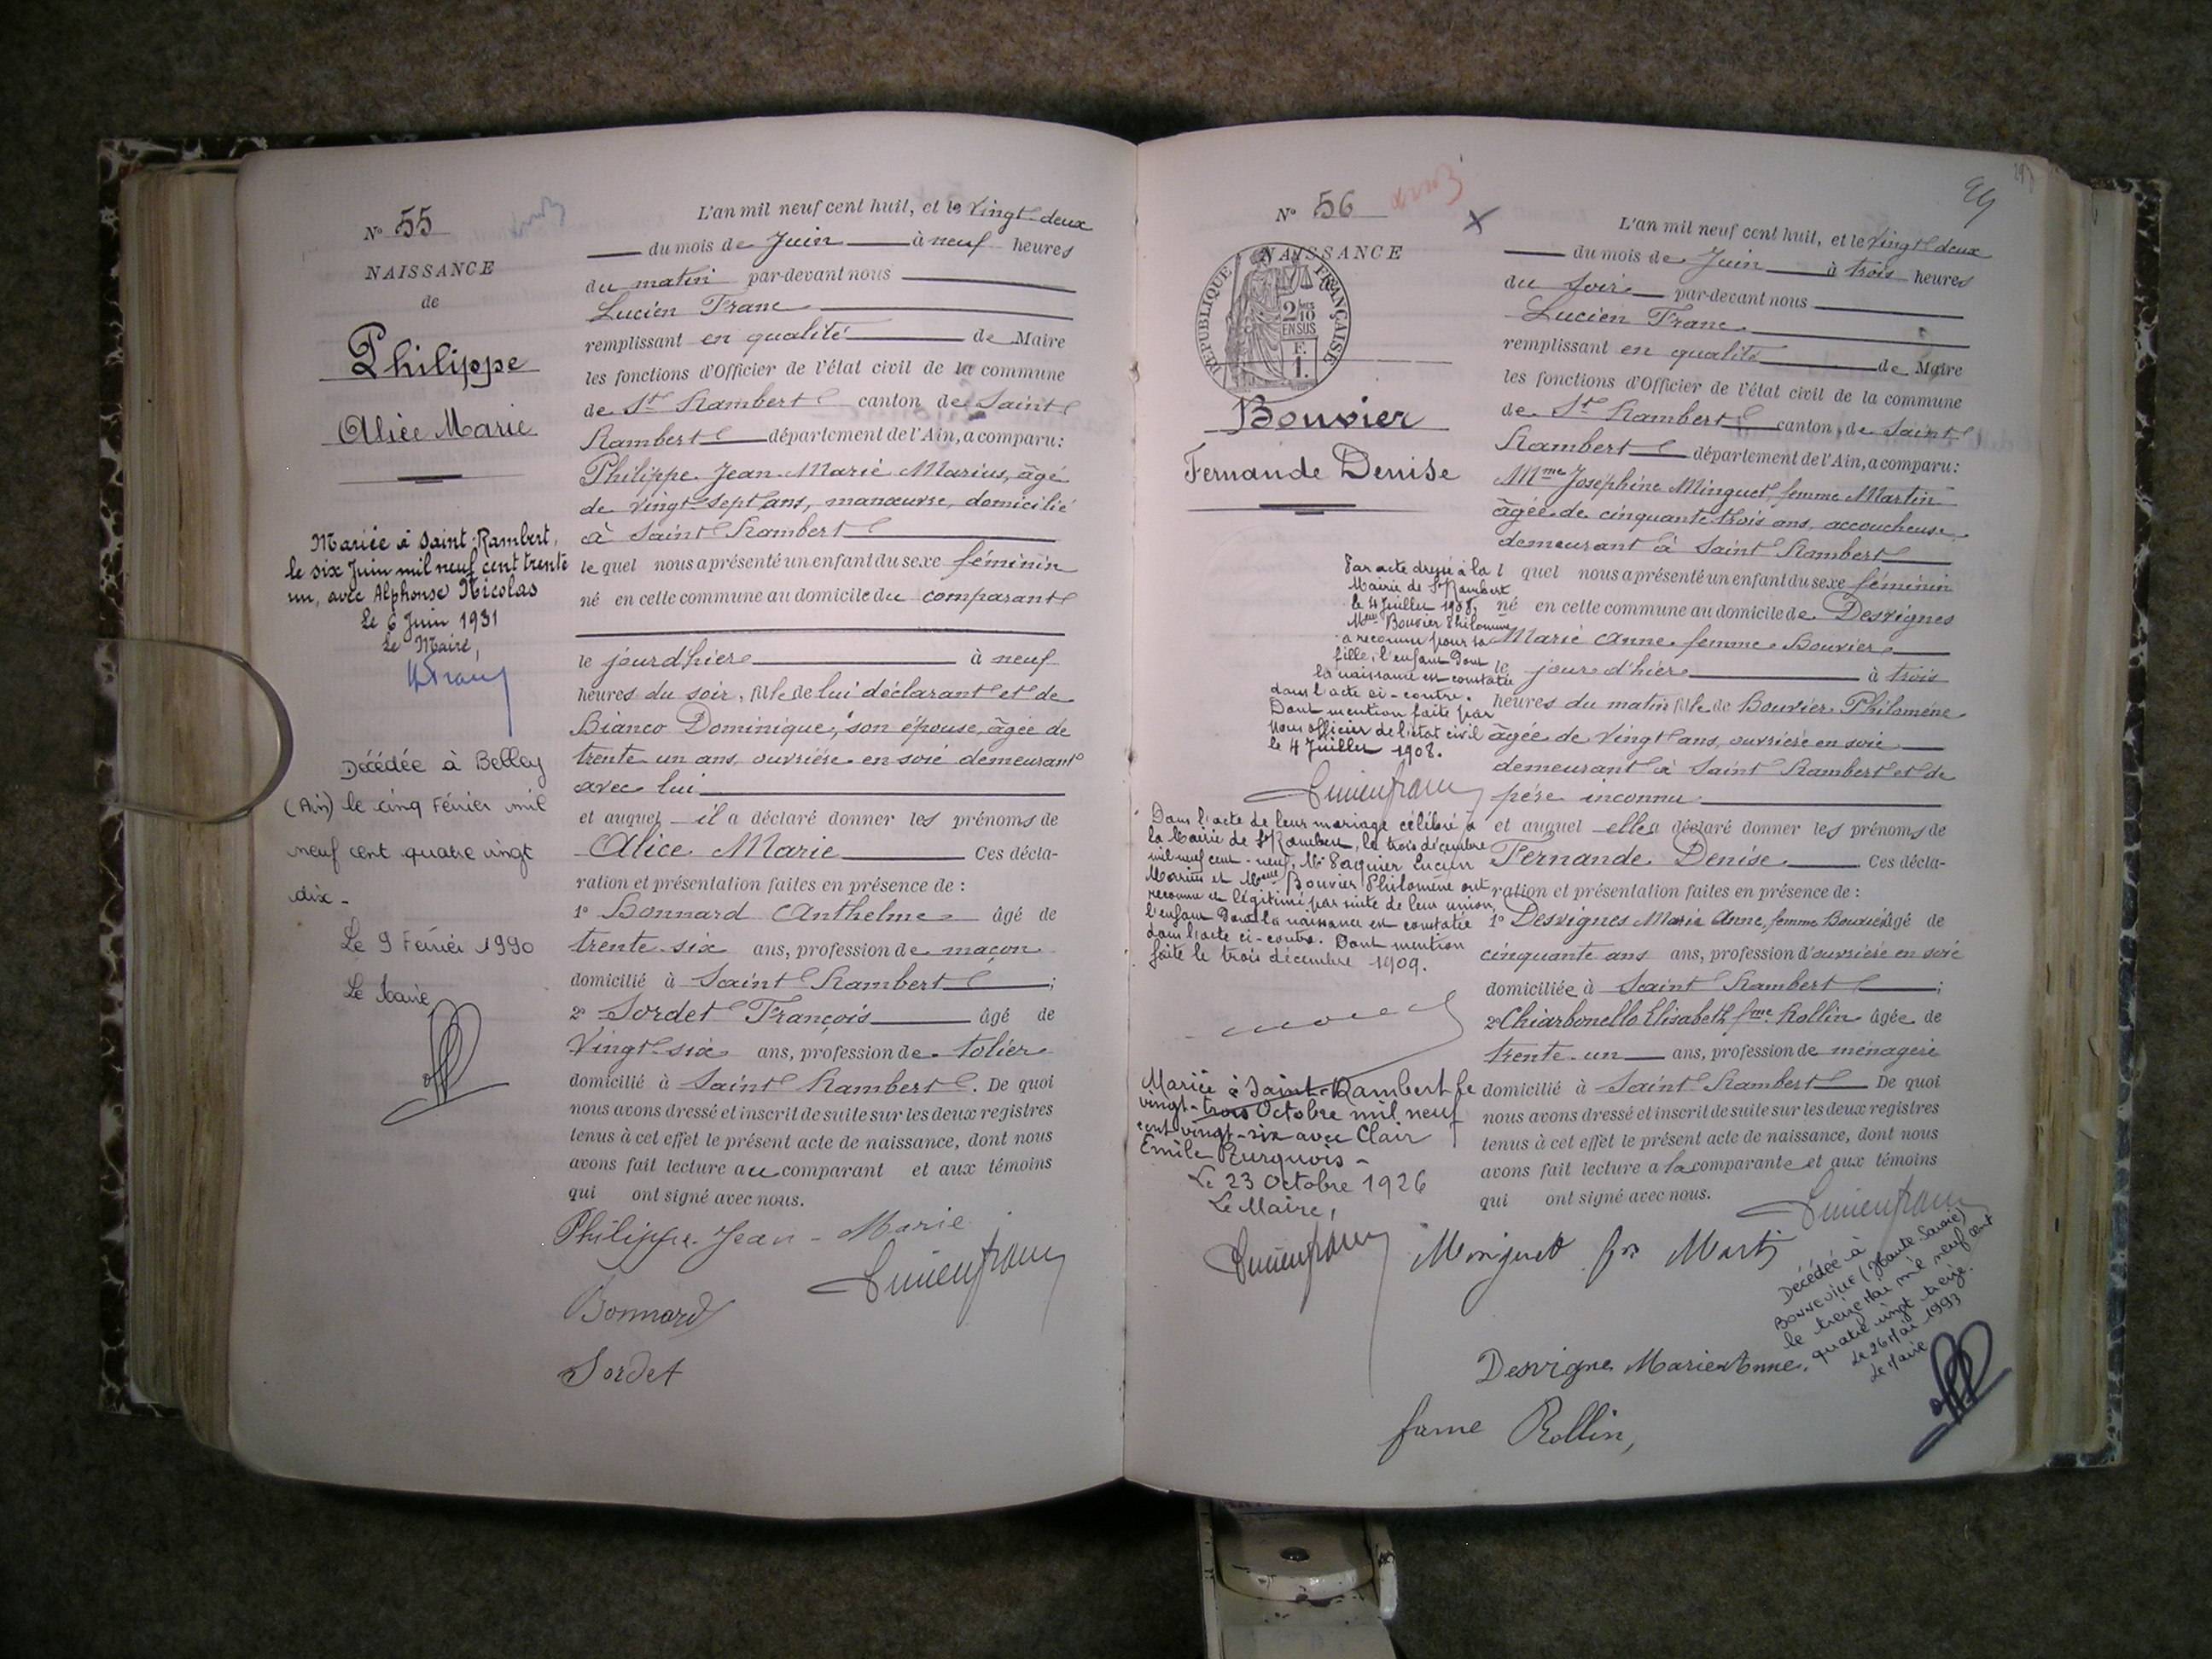 N° 55
NAISSANCE
de
Philippe
Alice Marie
Mariée à Saint-Rambert,
le six Juin mil neuf cent trente
un, avec Alphonse Nicolas
Le 6 Juin 1931
Le Maire,
Décédée à Belley
(Ain) le cinq Février mil
neuf cent quatre vingt
dix.
Le 9 Février 1990
Le Maire
L'an mil neuf cent huit, et le vingt-deux
du mois de Juin à neuf heures
du matin par-devant nous
Lucien Franc
remplissant en qualité de Maire
les fonctions d'Officier de l'état civil de la commune
de St Rambert canton de Saint
Rambert département de l'Ain, a comparu:
Philippe Jean-Marie Marius, âgé
de vingt-sept ans, manœuvre, domicilié
à Saint Rambert
le quel nous a présenté un enfant du sexe féminin
né en cette commune au domicile du comparant
le jour d'hier à neuf
heures du soir, fille de lui déclarant et de
Bianco Dominique, son épouse, âgée de
trente un ans, ouvrière en soie demeurant
avec lui
et auquel il a déclaré donner les prénoms de
Alice Marie Ces décla-
ration et présentation faites en présence de :
1° Bonnard Anthelme âgé de
trente-six ans, profession de maçon
domicilié à Saint Rambert ;
2° Sordet François âgé de
Vingt-six ans, profession de tolier
domicilié à Saint Rambert. De quoi
nous avons dressé et inscrit de suite sur les deux registres
tenus à cet effet le présent acte de naissance, dont nous
avons fait lecture au comparant et aux témoins
qui ont signé avec nous.
Philippe Jean-Marie
Lucien franc
Bonnard
Sordet
29
N° 56
NAISSANCE
RÉPUBLIQUE FRANÇAISE
2/10
EN SUS
F.
1.
Bouvier
Fernande Denise
Par acte dressé à la
Mairie de St Rambert
le 4 Juillet 1908,
Mme Bouvier Philomène
a reconnu pour sa
fille, l'enfant dont
la naissance est constatée
dans l'acte ci-contre.
Dont mention faite par
Nous officier de l'état civil
le 4 Juillet 1908.
Lucien franc
Dans l'acte de leur mariage célébré à
la Mairie de St Rambert, le trois décembre
mil neuf cent-neuf, Mr Paquier Lucien
Marius et Melle Bouvier Philomène ont
reconnu et légitimé par suite de leur union,
l'enfant dont la naissance est constatée
dans l'acte ci-contre. Dont mention
faite le trois décembre 1909.
Mariée à Saint-Rambert le
vingt-trois Octobre mil neuf
cent vingt-six avec Clair
Emile Burquois-
Le 23 Octobre 1926
Le Maire,
Lucien franc
L'an mil neuf cent huit, et le vingt-deux
du mois de Juin à trois heures
du soir par-devant nous
Lucien Franc
remplissant en qualité de Maire
les fonctions d'Officier de l'état civil de la commune
de St Rambert canton de Saint
Rambert département de l'Ain, a comparu:
Mme Joséphine Minguet, femme Martin
âgée de cinquante trois ans, accoucheuse
demeurant à Saint Rambert
l quel nous a présenté un enfant du sexe féminin
né en cette commune au domicile de Desvignes
Marie Anne femme Bouvier
le jour d'hier à trois
heures du matin fille de Bouvier Philomène
âgée de vingt ans, ouvrière en soie
demeurant à Saint Rambert et de
père inconnu
et auquel elle a déclaré donner les prénoms de
Fernande Denise Ces décla-
ration et présentation faites en présence de :
1° Desvignes Marie Anne, femme Bouvier âgé de
cinquante ans ans, profession d'ouvrière en soie
domiciliée à Saint Rambert ;
2° Chiarbonello Elisabeth fme Rollin âgée de
trente-un ans, profession de ménagère
domicilié à Saint Rambert De quoi
nous avons dressé et inscrit de suite sur les deux registres
tenus à cet effet le présent acte de naissance, dont nous
avons fait lecture a la comparante et aux témoins
qui ont signé avec nous.
Lucien franc
Minguet fe Martin
Desvigne Marie Anne.
fame Rollin,
Décédée à
BONNEVILLE (Haute Savoie)
le treize Mai mil neuf cent
quatre vingt treize.
Le 26 Mai 1993
Le Maire